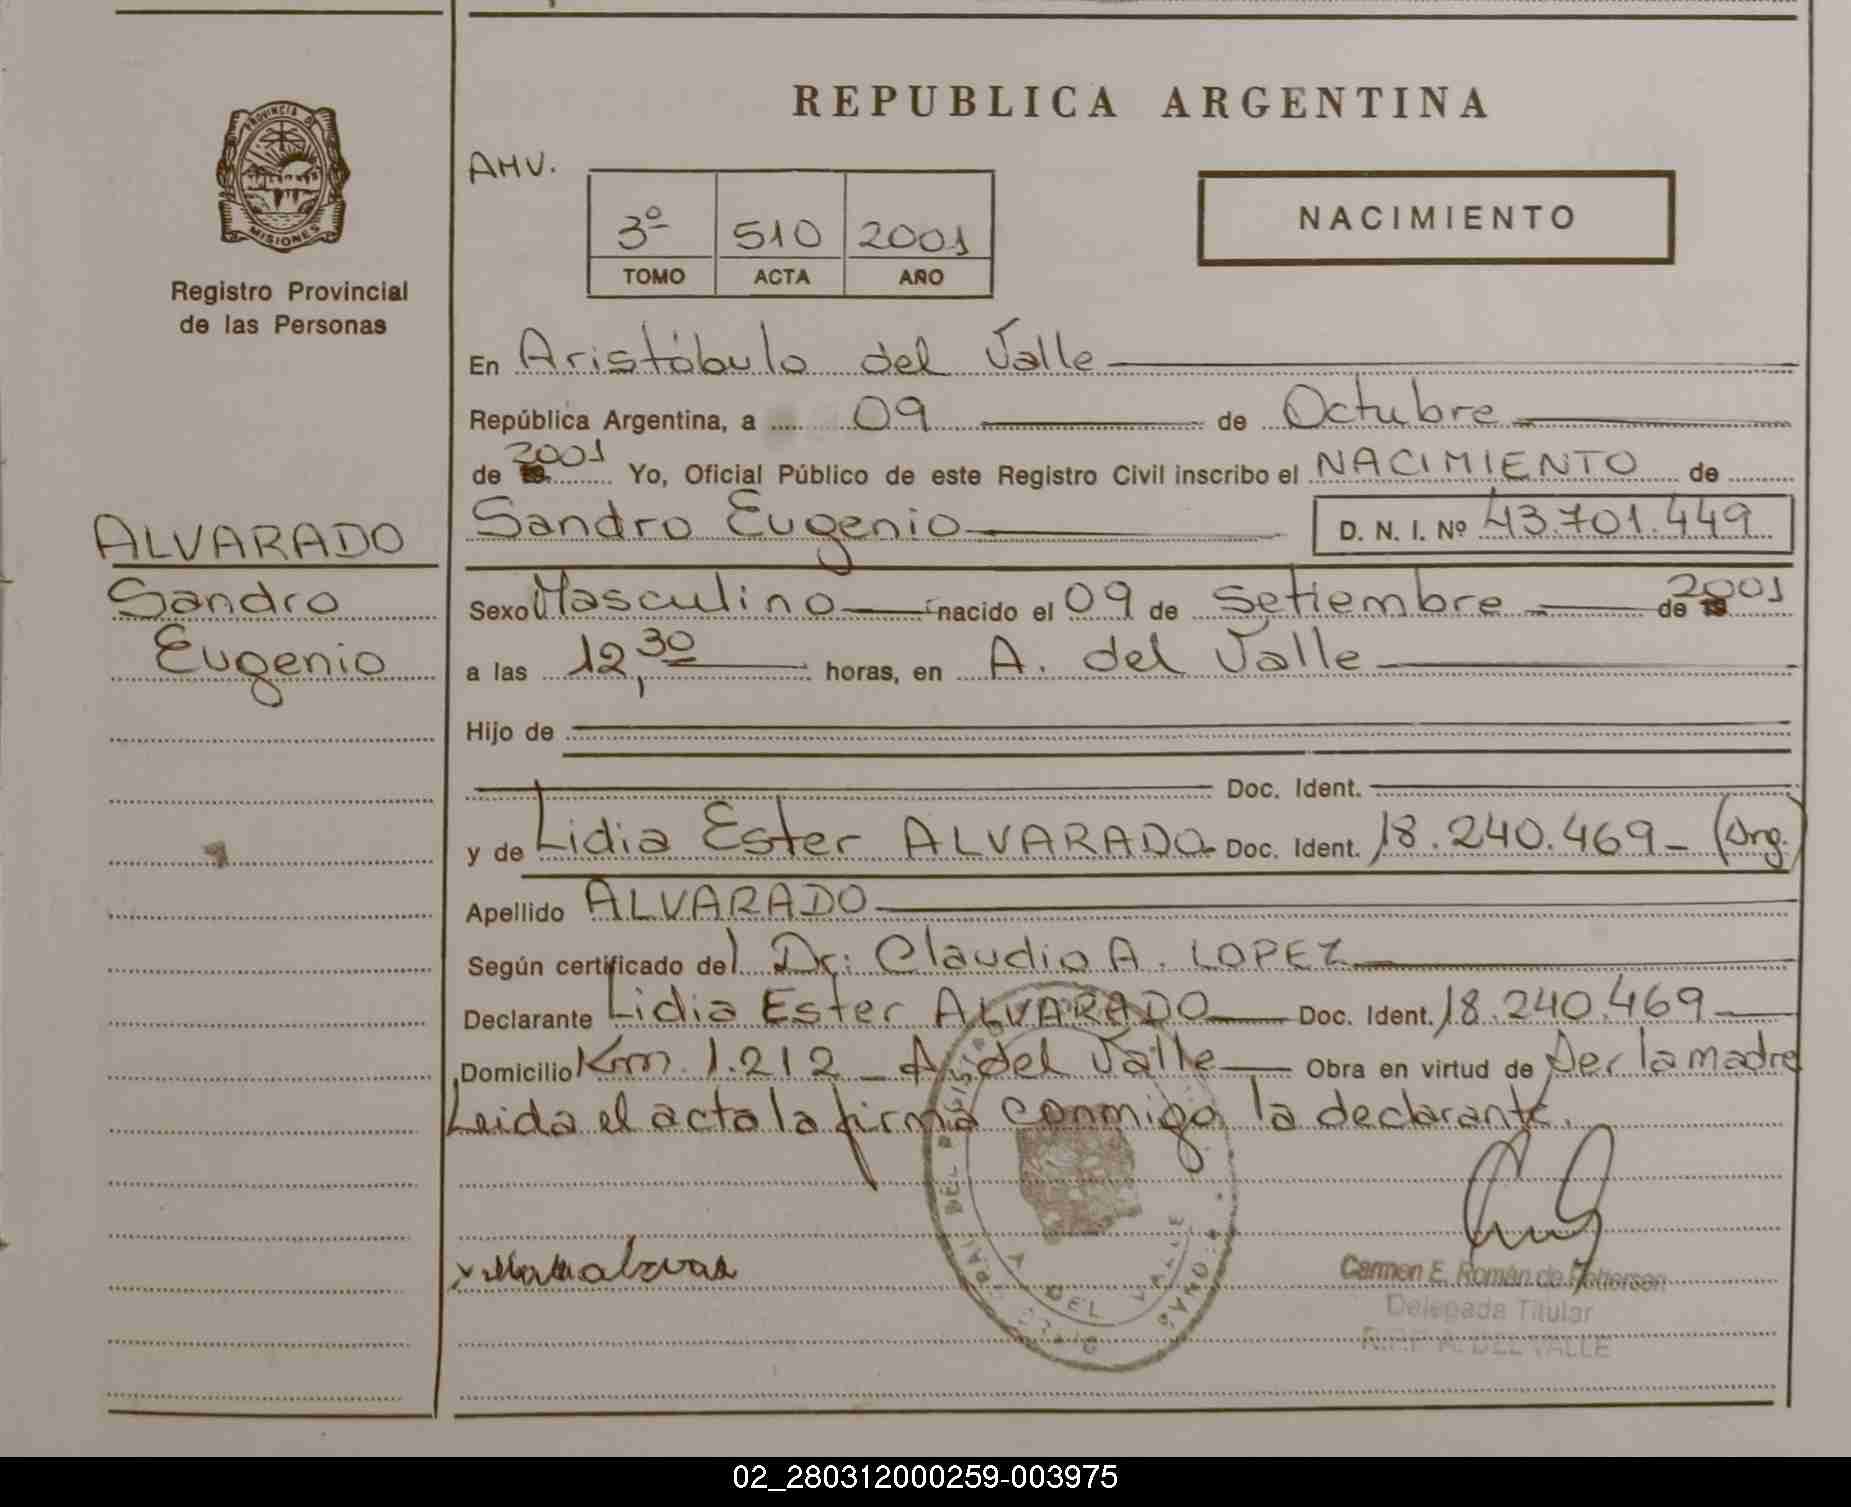 PROVINCIA DE
MISIONES
Registro Provincial
de las Personas
ALVARADO
Sandro
Eugenio
REPUBLICA ARGENTINA
AHV.
3º 510 2001
TOMO ACTA AÑO
NACIMIENTO
En Aristóbulo del Valle
República Argentina, a 09 de Octubre
de 2001 Yo, Oficial Público de este Registro Civil inscribo el NACIMIENTO de
Sandro Eugenio D. N. I. Nº 43.701.449
Sexo Masculino nacido el 09 de Setiembre de 2001
a las 12,30 horas, en A. del Valle
Hijo de
Doc. Ident.
y de Lidia Ester ALVARADO Doc. Ident. 18.240.469 - (Arg.)
Apellido ALVARADO
Según certificado del Dr: Claudio A. LOPEZ
Declarante Lidia Ester ALVARADO Doc. Ident. 18.240.469
Domicilio Km. 1.212 - A. del Valle Obra en virtud de Ser la madre
Leida el acta la firma conmigo la declarante.
A DEL VALLE
Carmen E. Román de
Delegada Titular
A. DEL VALLE
02_280312000259-003975